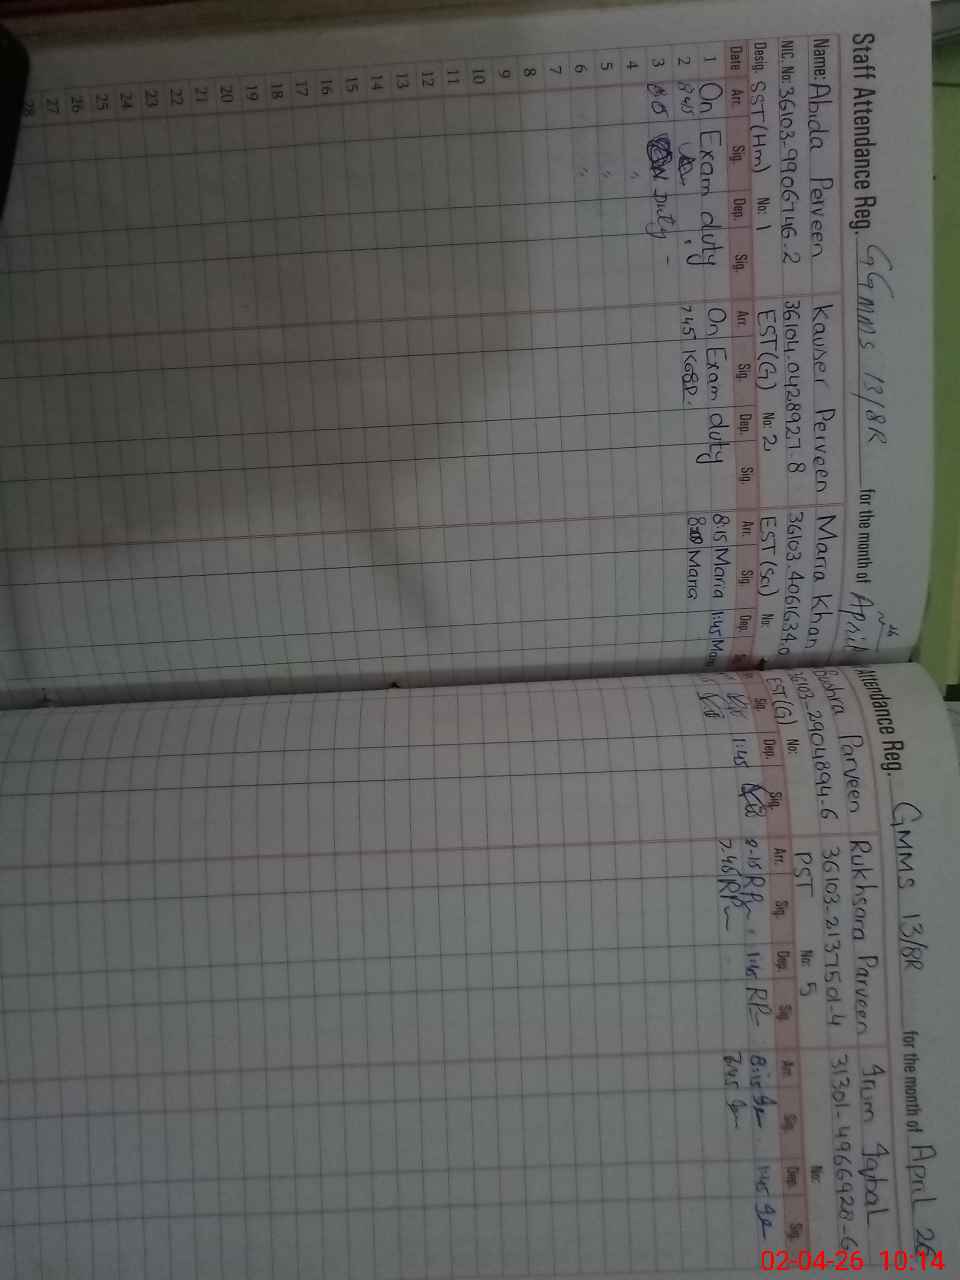 Staff Attendance Reg. GGMMS 13/8R for the month of April 26
Name: Abida Perveen Kauser Perveen Maria Khan
NIC. No: 36103-9906746-2 36104.0428927-8 36103.4061634.0
Desig. SST (Hm) No: 1 EST(G) No: 2 EST (Sci) No:
Date Arr. Sig. Dep. Sig. Arr. Sig. Dep. Sig. Arr. Sig. Dep.
1 On Exam duty On Exam duty 8:15 Maria 1:45
2 7:45 Maria
3 Duty -
4 "
5 "
6 "
7
8
9
10
11
12
13
14
15
16
17
18
19
20
21
22
23
24
25
26
27
28
Attendance Reg. GMMS 13/8R for the month of April 26
Bushra Parveen Rukhsara Parveen Irum Iqbal
36103-2904894-6 36103-2137501-4 31301-4966928-6
EST(G) No: PST No: 5 No:
Sig. Dep. Sig. Arr. Sig. Dep. Sig. Arr. Sig. Dep. Sig.
1:45 8-15 RP 1:45 RP 8:15 1:45
7:45 RP 7:45
02-04-26 10:14